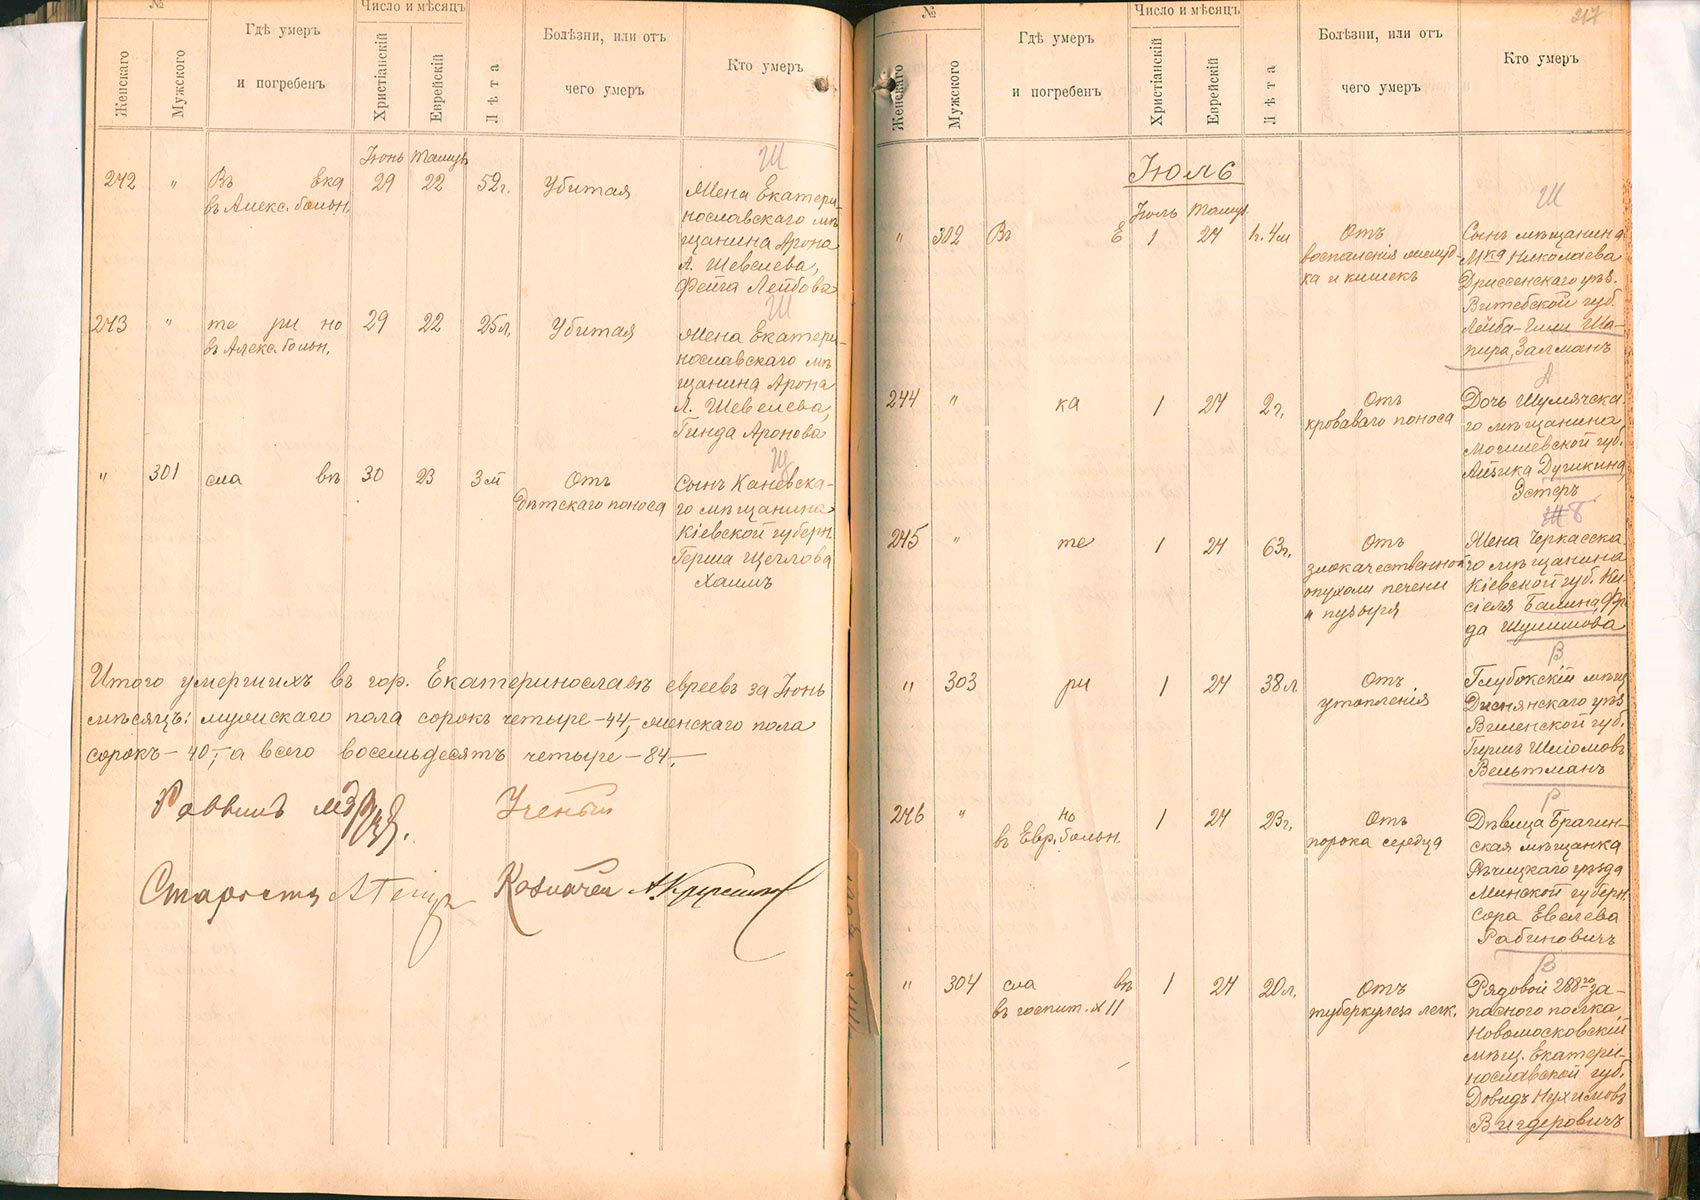 №
Число и мѣсяцъ
Женскаго
Мужскаго
Гдѣ умеръ
и погребенъ
Христіанскій
Еврейскій
Лѣта
Болѣзни, или отъ
чего умеръ
Кто умеръ
Іюнь Тамузъ
Ш
242 " Въ Ека 29 22 52г. Убитая Жена Екатери-
въ Алекс. больн. нославскаго мѣ-
щанина Арона
Л. Шевелева,
Фейга Лейбова
Ш
243 " те ри но 29 22 25л. Убитая Жена Екатери-
въ Алекс. больн. нославскаго мѣ
щанина Арона
Л. Шевелева,
Гинда Аронова
Щ
" 301 сла вѣ 30 23 3м Отъ Сынъ Каневска-
дѣтскаго поноса го мѣщанина
Кіевской губерн.
Герша Щеглова
Хаимъ
Итого умершихъ въ гор. Екатеринославѣ евреевъ за Іюнь
мѣсяцъ: мужскаго пола сорокъ четыре – 44, – женскаго пола
сорокъ – 40, – а всего восемьдесятъ четыре – 84. –
Раввинъ Ученый
Староста Казначей
217
№
Число и мѣсяцъ
Женскаго
Мужского
Гдѣ умеръ
и погребенъ
Христіанскій
Еврейскій
Лѣта
Болѣзни, или отъ
чего умеръ
Кто умеръ
Іюль
Іюль Тамуз.
Ш
" 302 Въ Е 1 24 1г. 4м Отъ Сынъ мѣщанина
воспаленія желуд- М-ка Николаева
ка и кишекъ Дриссенскаго уѣз.
Витебской губ.
Лейба-Гилли Ша-
пира, Залманъ
Д
244 " ка 1 24 2г. Отъ Дочь Шумячска-
кроваваго поноса го мѣщанина
Могилевской губ.
Айзика Душкина,
Эстеръ
Ш Б
245 " те 1 24 63г. Отъ Жена Черкасска-
злокачественной го мѣщанина
опухоли печени Кіевской губ. Ки-
и пузыря сіеля Балина, Фр
да Шулимова
В
" 303 ри 1 24 38л Отъ Глубокскій мѣщ
утопленія Диснянскаго уѣз
Виленской губ.
Гирша Шліомовъ
Вельтманъ
Р
246 " но 1 24 23г. Отъ Дѣвица Брагин-
въ Евр. больн. порока сердца ская мѣщанка
Рѣчицкаго уѣзда
Минской губерн.
Сора Евелева
Рабиновичъ
В
" 304 сла вѣ 1 24 20л. Отъ Рядовой 288го за-
въ госпит. XII туберкулеза легк. паснаго полка,
Новомосковскій
мѣщ. Екатери-
нославской губ.
Довидъ Нухимовъ
Вигдеровичъ